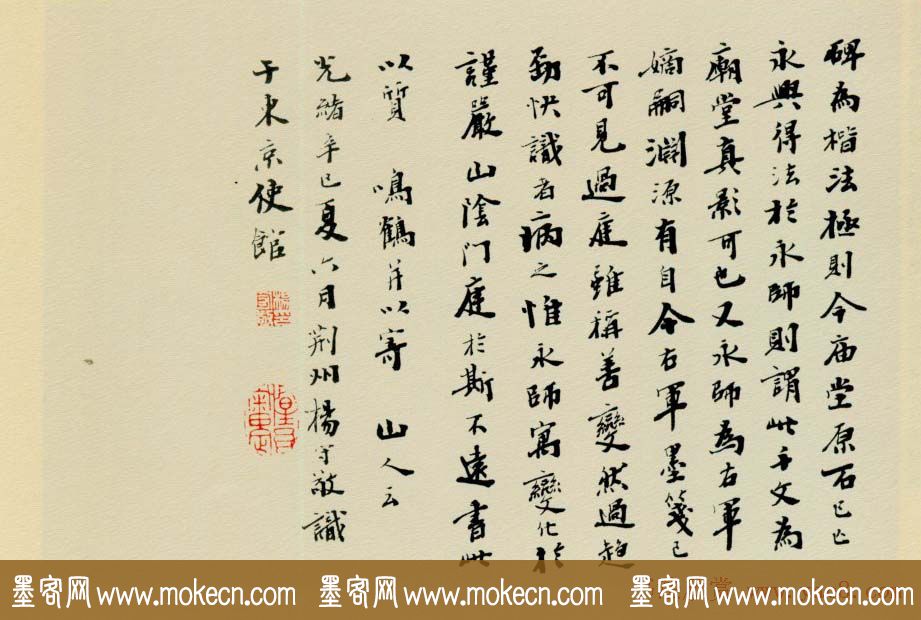 碑為楷法極則今庙堂原石已亡
永興得法於永師則謂此千文為
廟堂真影可也又永師為右軍
嫡嗣淵源有自今右軍墨箋已
不可見過庭雖稱善變然過趋
勁快識者病之惟永師寓變化於
謹嚴山陰門庭於斯不遠書此
以質 鳴鶴并以寄 山人云
光緒辛巳夏六月荆州楊守敬識
于東京使館
墨客网 www.mokecn.com 墨客网 www.mokecn.com 墨客网 www.mokecn.com